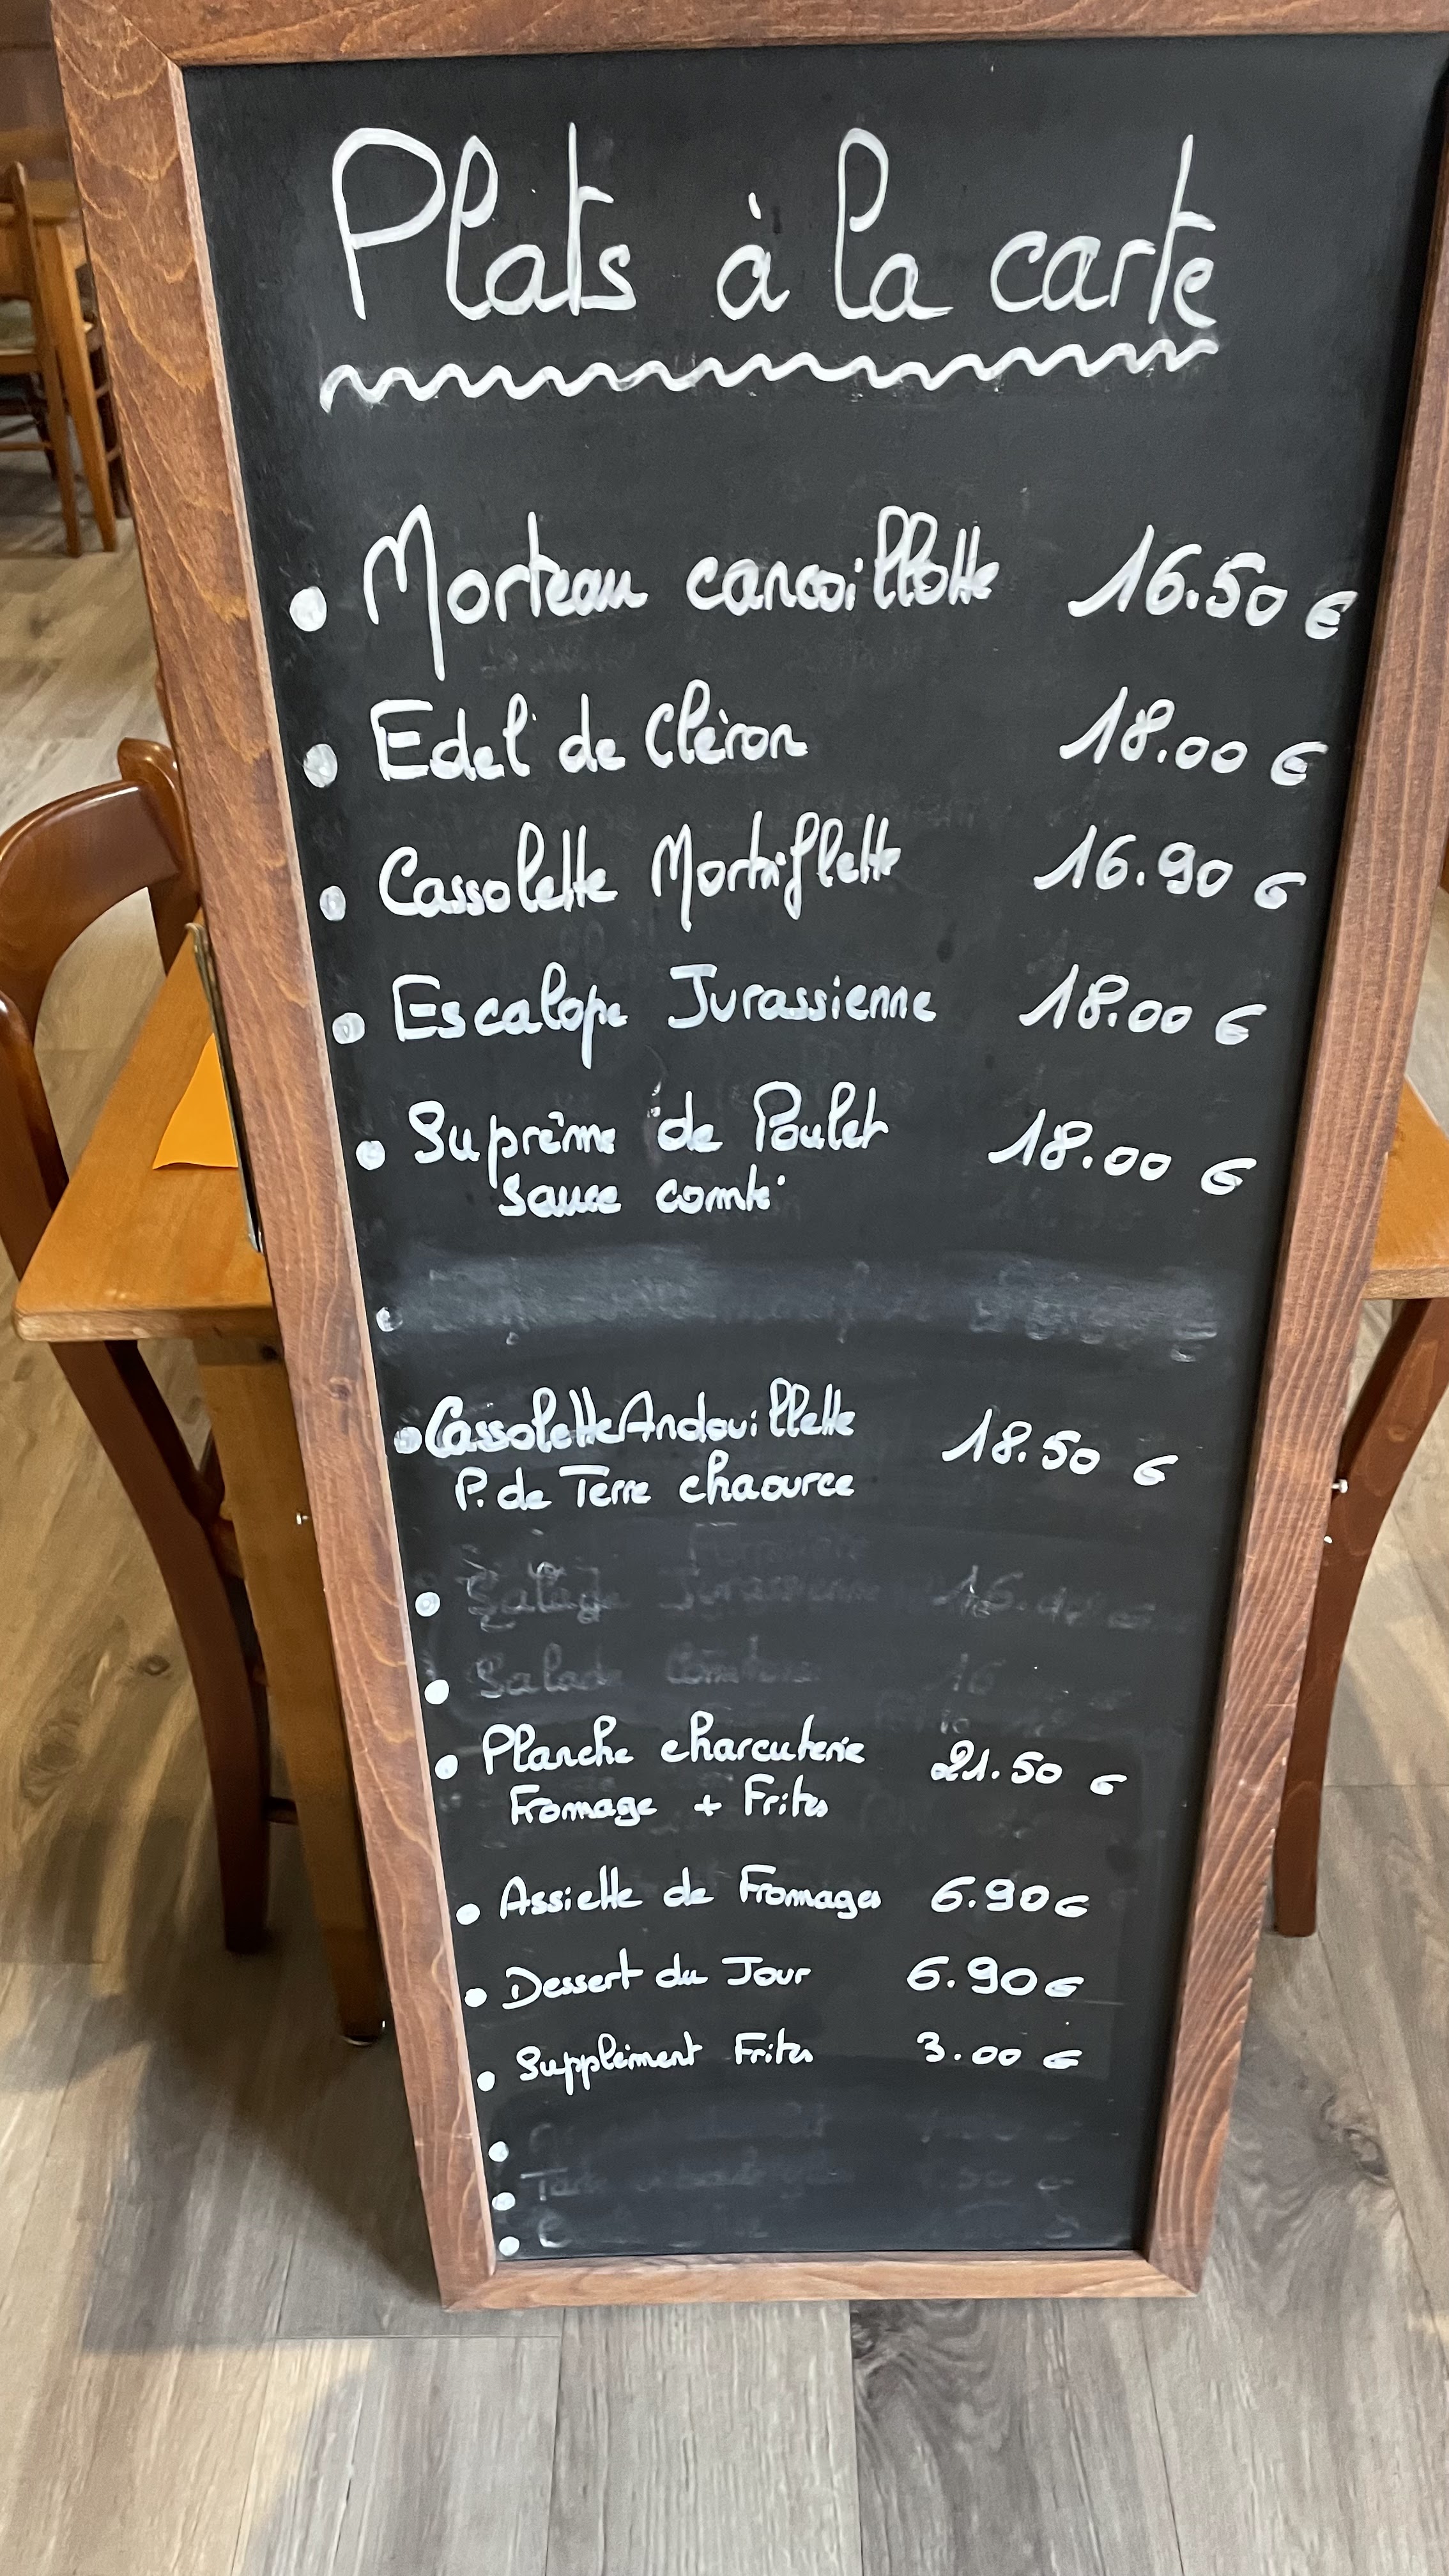 Plats à la carte
• Morteau cancoillotte 16.50 €
• Edel de Cléron 18.00 €
• Cassolette Mortiflette 16.90 €
• Escalope Jurassienne 18.00 €
• Suprême de Poulet 18.00 €
sauce comté
• Cassolette Andouillette 18.50 €
P. de Terre chaource
• Salade Jurassienne
• Salade
• Planche charcuterie 21.50 €
Fromage + Frites
• Assiette de Fromages 6.90 €
• Dessert du Jour 6.90 €
• Supplément Frites 3.00 €